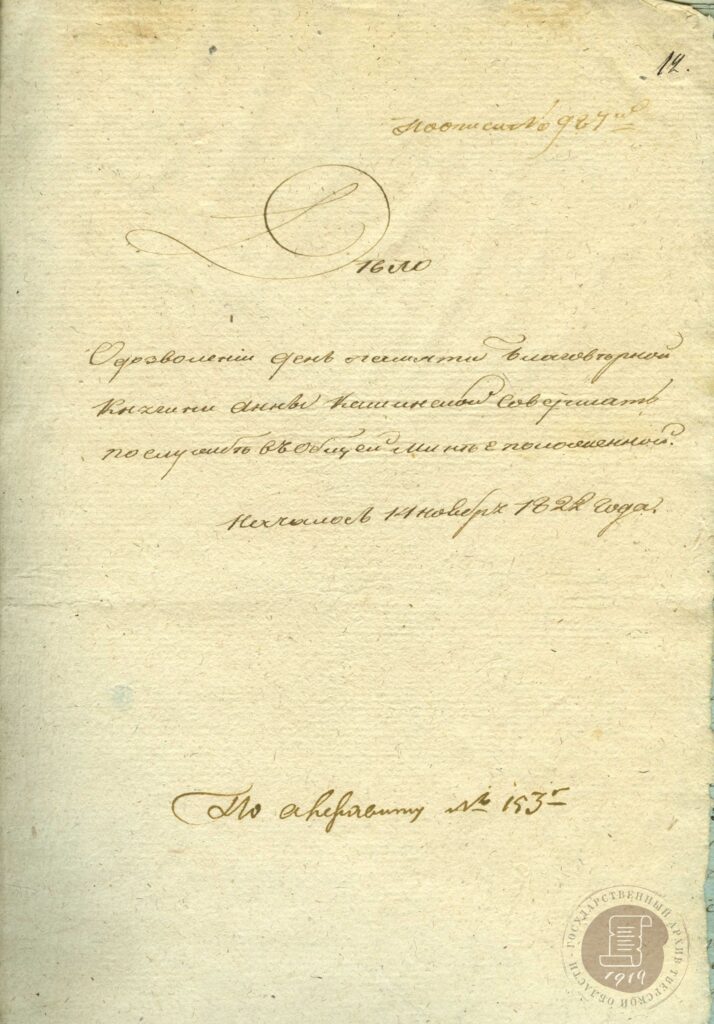 12.
По описи № 927ый
Дѣло
О дозволеніи день памяти благовѣрной
Княгини Анны Кашинской совершать
по службѣ въ общей минѣе положенной.
Началось 14 ноября 1822 года.
По алфавиту № 153
ГОСУДАРСТВЕННЫЙ АРХИВ ТВЕРСКОЙ ОБЛАСТИ
1919